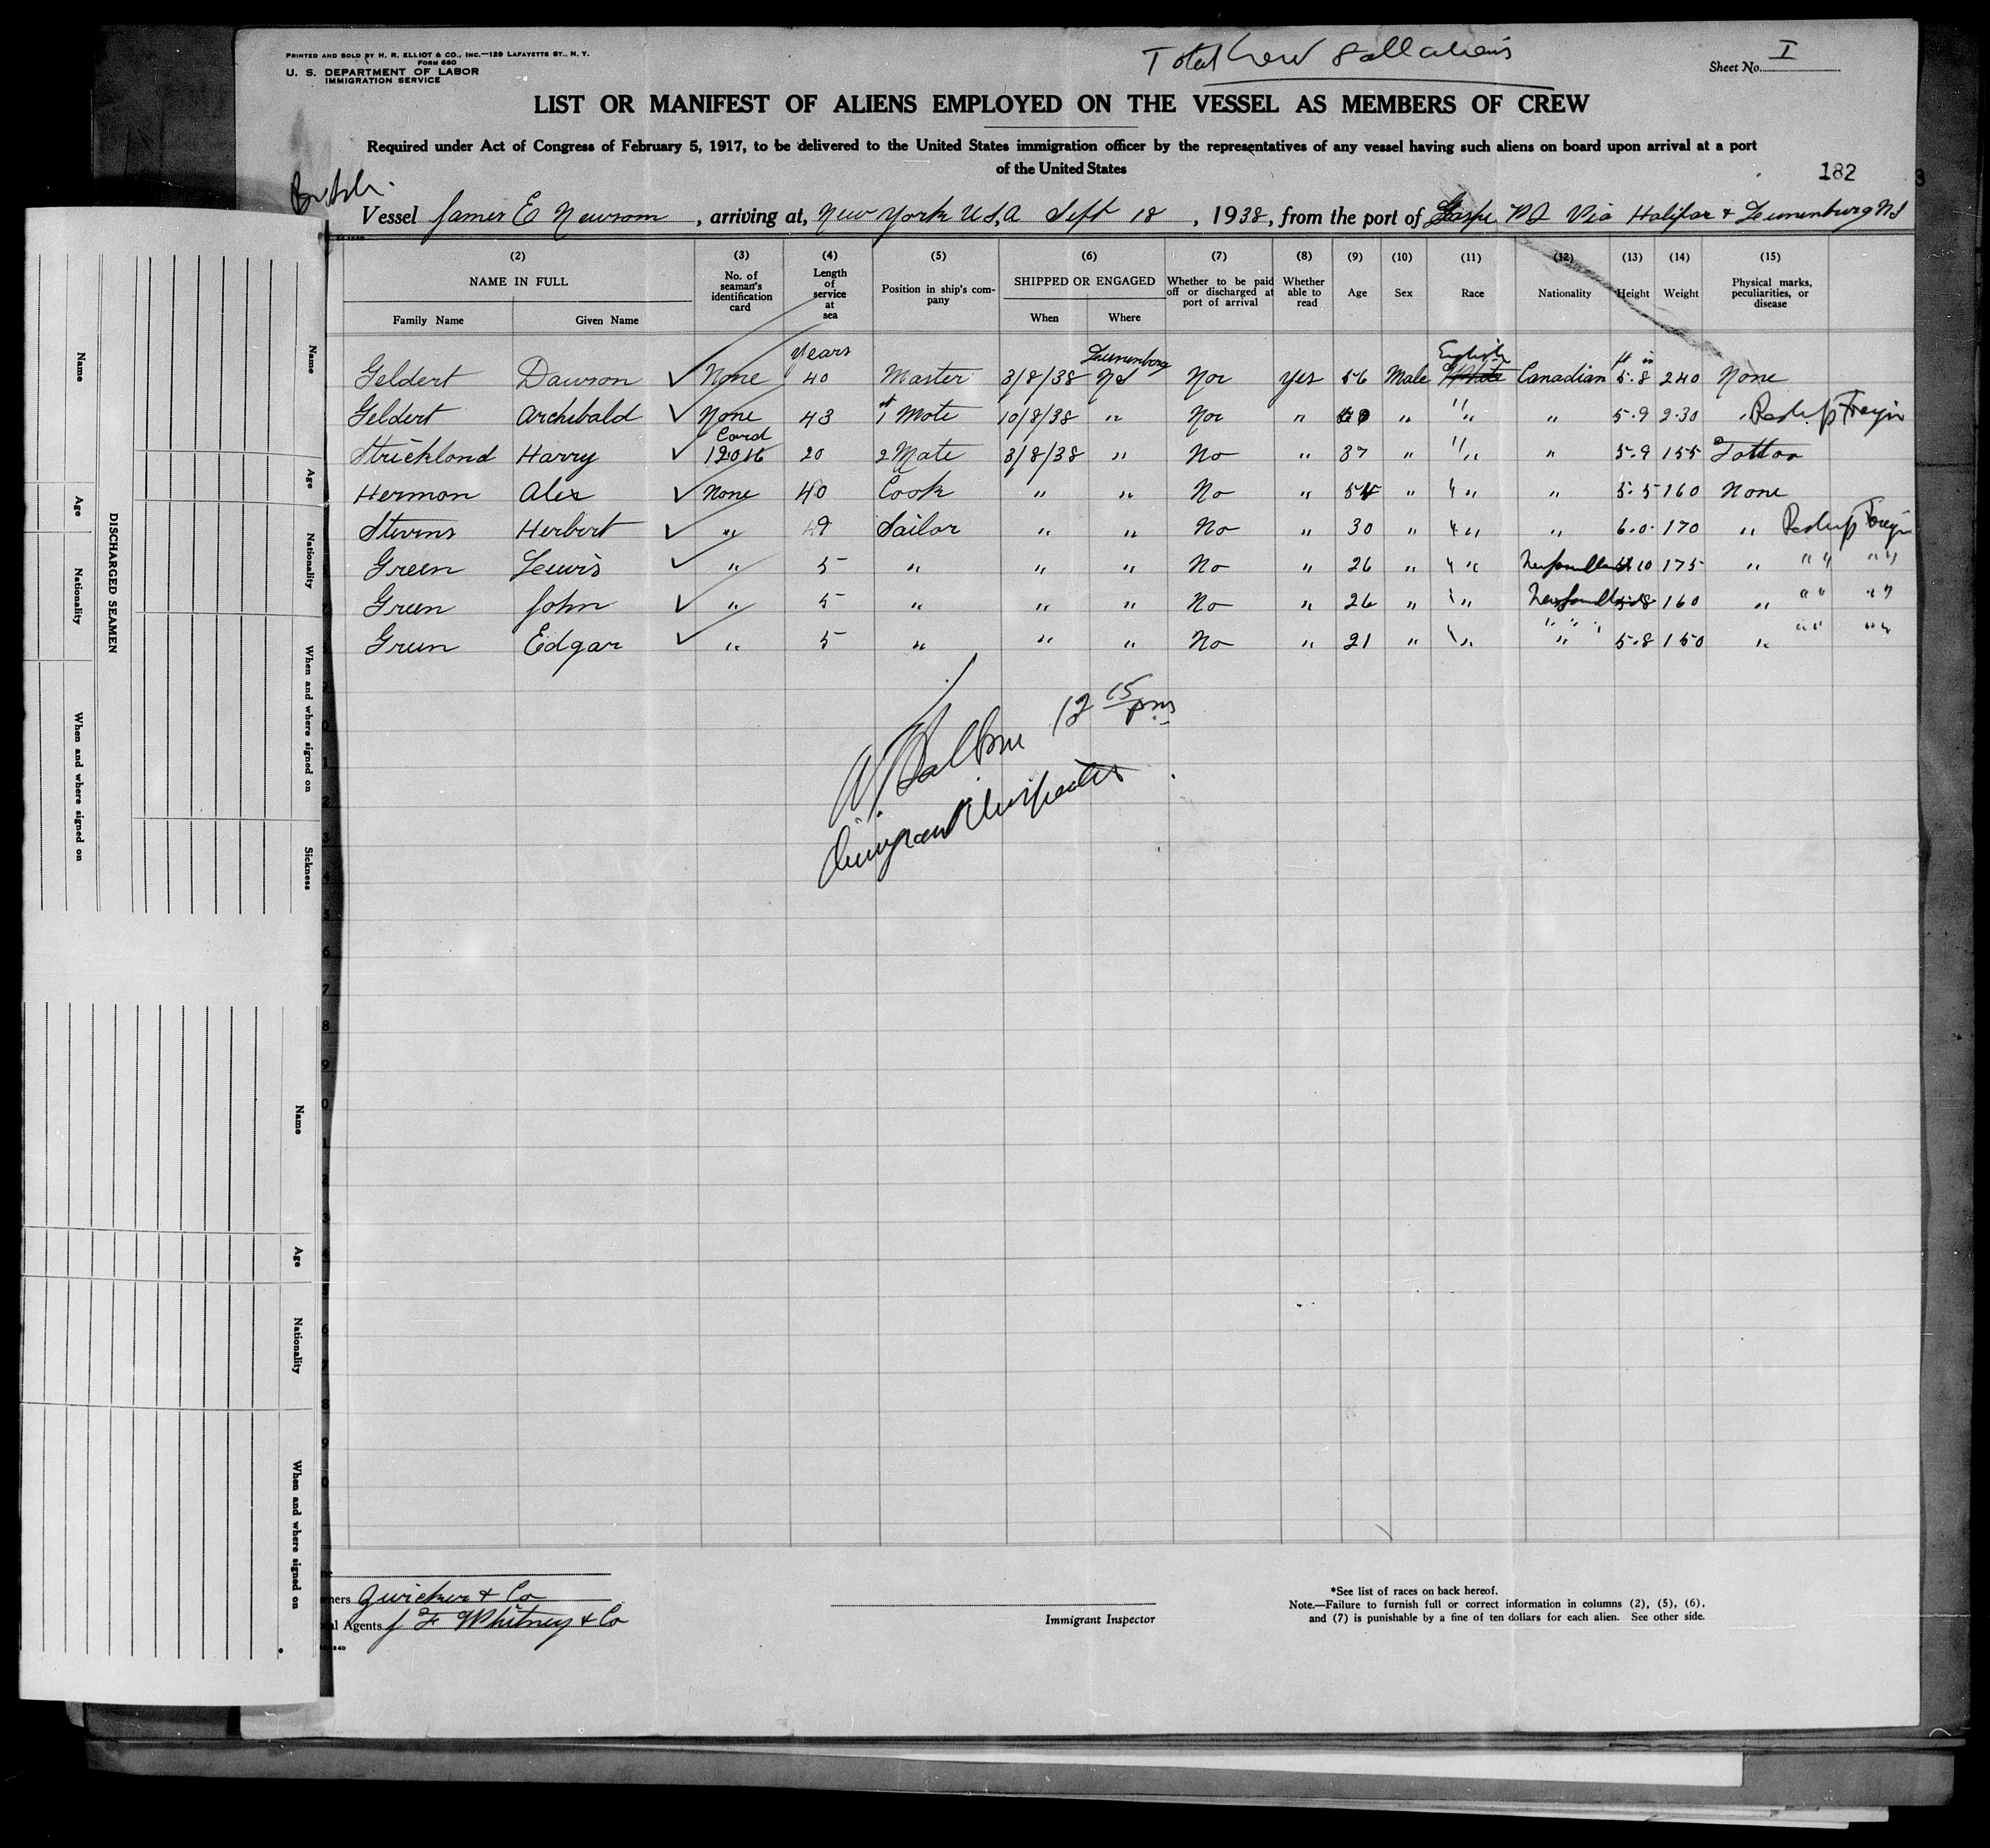 PRINTED AND SOLD BY H. R. ELLIOT & CO., INC.—129 LAFAYETTE ST., N. Y.
FORM 680
U. S. DEPARTMENT OF LABOR
IMMIGRATION SERVICE
Total Crew 8 all aliens
Sheet No. I
LIST OR MANIFEST OF ALIENS EMPLOYED ON THE VESSEL AS MEMBERS OF CREW
Required under Act of Congress of February 5, 1917, to be delivered to the United States immigration officer by the representatives of any vessel having such aliens on board upon arrival at a port
of the United States
182
Vessel James E Newsom, arriving at, New York U.S.A Sept 18, 1938, from the port of Gaspe Via Halifax & Lunenburg NS
(2) (3) (4) (5) (6) (7) (8) (9) (10) (11) (12) (13) (14) (15)
NAME IN FULL No. of seaman's identification card Length of service at sea Position in ship's company SHIPPED OR ENGAGED Whether to be paid off or discharged at port of arrival Whether able to read Age Sex Race Nationality Height Weight Physical marks, peculiarities, or disease
Family Name Given Name When Where
years Lunenburg English ft in
Geldert Dawson ✓ None 40 Master 3/8/38 NS No yes 56 Male White Canadian 5.8 240 None
Geldert Archibald ✓ None 43 1st Mate 10/8/38 " No " " " " 5.9 230 "
Card
Strickland Harry ✓ 12016 20 2 Mate 3/8/38 " No " 37 " " " 5.9 155 Tattoo
Herman Alex ✓ None 40 Cook " " No " " " " 5.5 160 None
Stevens Herbert ✓ " Sailor " " No " 30 " " " 6.0 170 "
Green Lewis ✓ " 5 " " " No " 26 " " Newfoundland 10 175 " " " " "
Green John ✓ " 5 " " " No " 26 " " Newfoundland 5.8 160 " " " " "
Green Edgar ✓ " 5 " " " No " 21 " " " 5.8 150 " " " " "
12 15 pm
Immigrant Inspector
Zwicker & Co
Agents J F Whitney & Co
Immigrant Inspector
*See list of races on back hereof.
Note.—Failure to furnish full or correct information in columns (2), (5), (6),
and (7) is punishable by a fine of ten dollars for each alien. See other side.
DISCHARGED SEAMEN
Name Age Nationality When and where signed on
Name Age Nationality When and where signed on Sickness
Name Age Nationality When and where signed on